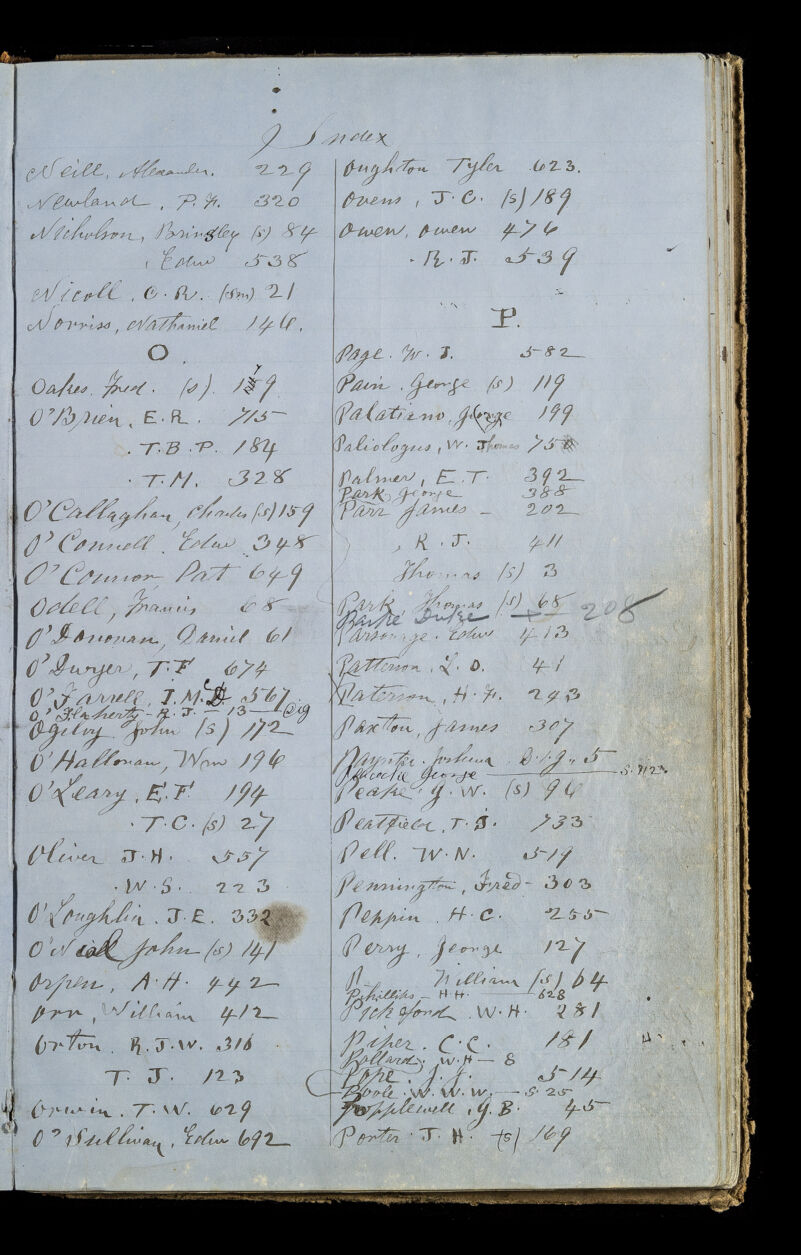 Index
Neill, Alexander. 229
Newland, P. F. 320
Nicholson, Brinsley (s) 84
, Edw 538
Nicoll, C. R. (Sm) 21
Norriss, Nathaniel 146.
O.
Oakes, Fred. (s) 119
O'Brien, E. R. 715
. T. B. P. 184
. T. M. 328
O'Callaghan, Charles (s) 159
O'Connell, Edw 348
O'Connor Pat 649
Odell, Francis 68
O'Donovan, Daniel 61
O'Dwyer, T. F 674
O'Farrell, I. M. 567
O'Flaherty - R. J. - 13 - Dig
Ogilvy John (s) 172
O'Halloran, Wm 196
O'Leary, E. F. 194
. T. C. (s) 27
Oliver J. H. 557
. W. S. 223
O'Loughlin. J. E. 332
O'Neill John (s) 141
Orpen, A. H. 442
Orr, William 412
Orton. R. J. W. 316
T. J. 123
Orwin. T. W. 629
O'Sullivan, Edw 692
Oughton Tyler 623.
Ovens, J. C. (s) 189
Owen, Owen 476
. R. J. 539
P.
Page. W. J. 582
Pain. George (s) 119
Palatiano, George 199
Paliologus, W. Thomas 750
Palmer, E. T. 392
Park, George 388
Parr James - 202
, R. J. 411
Thomas (s) 3
Park Thomas (s) 68
Parke Duke 208
Parsonage. Edw 413
Patterson, L. O. 41
Paterson, H. F. 243
Paxton, James 307
Paynter. Joshua. Dig. 5
George - S. 712
Peake, G. W. (s) 96
Peatfield, T. J. 733
Pell. W. N. 519
Pennington, Fred - 303
Peppin. H. C. 255
Perry, George 127
William (s) 64
Phillips - H H. - 628
Pickford W. H. 281
Piper. C. C. 181
Pollard. W. H - 8
Pope. J. J. 514
Poole. W. W. W. - S. 25
Popplewell, G. B. 45
Porter. J. H. (s) 169